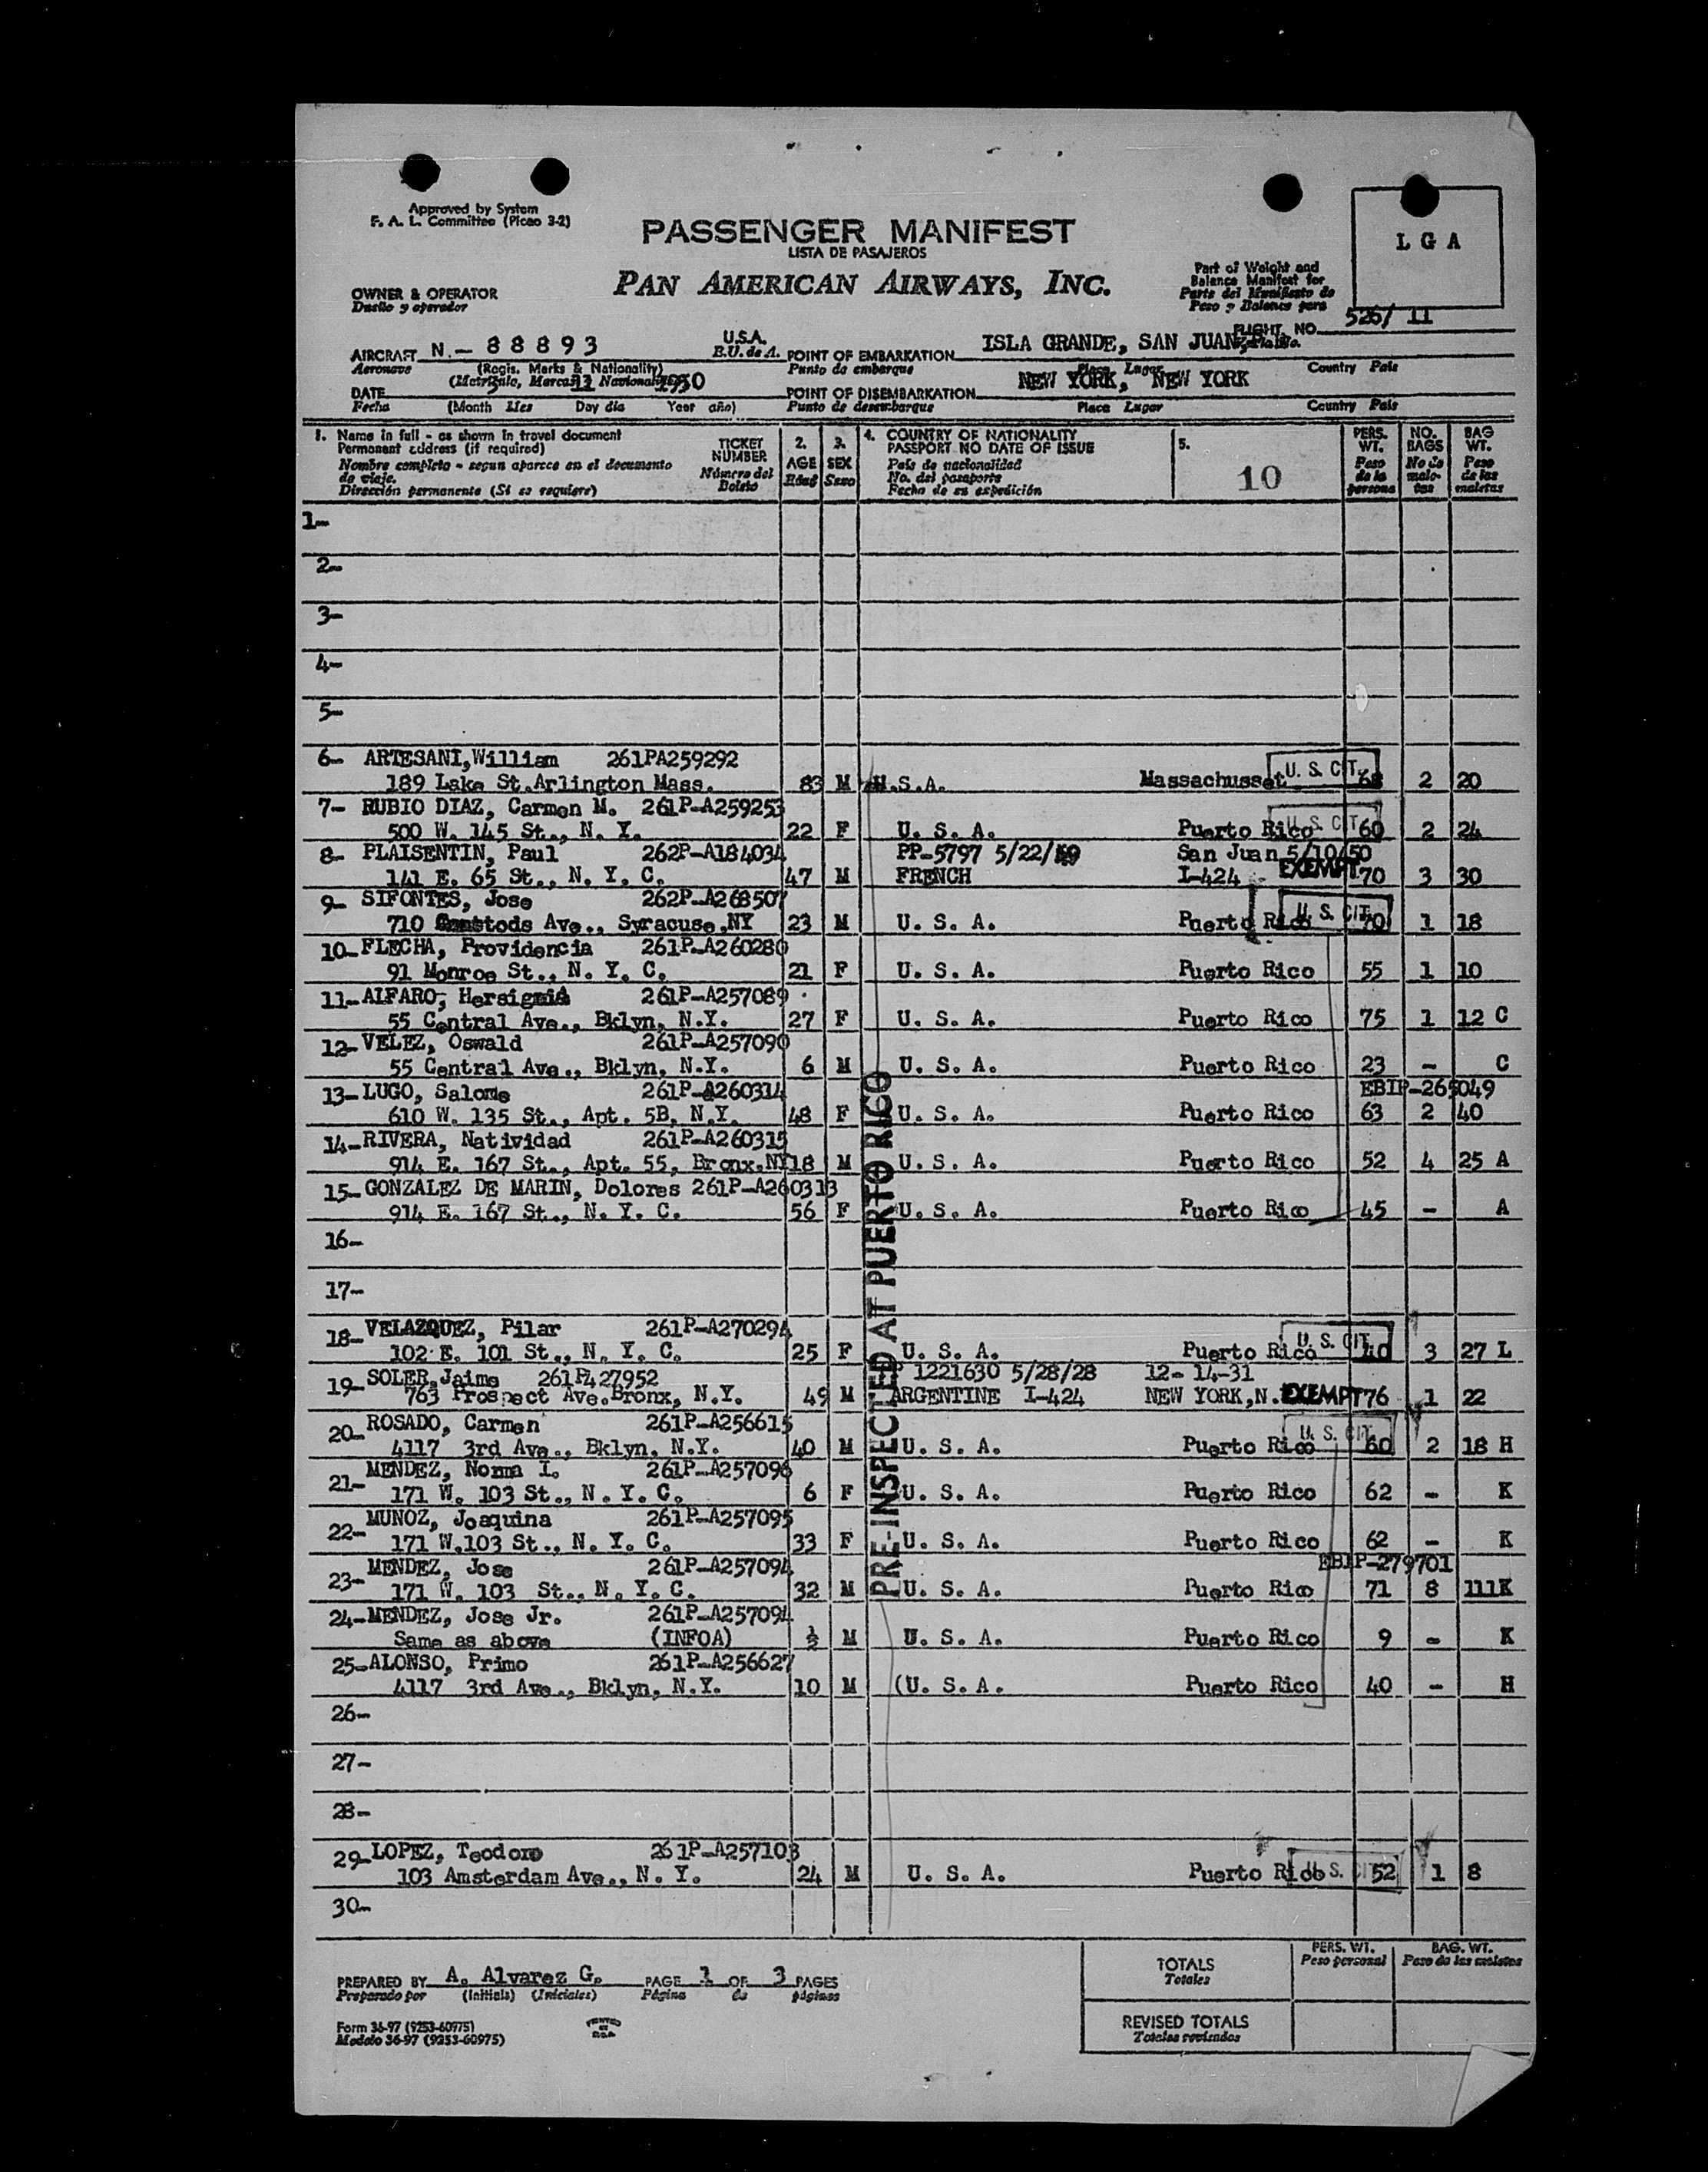 Approved by System
F. A. L. Committee (Picao 3-2)
PASSENGER MANIFEST
LISTA DE PASAJEROS
PAN AMERICAN AIRWAYS, INC.
L G A
Part of Weight and
Balance Manifest for
Parte del Manifiesto de
Peso y Balance para
OWNER & OPERATOR
Dueño y operador
FLIGHT NO. 526/ 11
AIRCRAFT N.- 88893 U.S.A.
Aeronave (Regis. Marks & Nationality) E.U. de A.
POINT OF EMBARKATION ISLA GRANDE, SAN JUAN,
Punto de embarque Place Lugar Country País
DATE 11 1950
Fecha (Month Mes Day dia Year año)
POINT OF DISEMBARKATION NEW YORK, NEW YORK
Punto de desembarque Place Lugar Country País
1. Name in full - as shown in travel document
Permanent address (if required)
Nombre completo - segun aparece en el documento
de viaje.
Dirección permanente (Si se requiere)
TICKET
NUMBER
Número del
Boleto
2.
AGE
Edad
3.
SEX
Sexo
4. COUNTRY OF NATIONALITY
PASSPORT NO DATE OF ISSUE
País de nacionalidad
No. del pasaporte
Fecha de su expedición
5.
10
PERS.
WT.
Peso
de la
persona
NO.
BAGS
No de
male-
tas
BAG
WT.
Peso
de las
maletas
1-
2-
3-
4-
5-
6- ARTESANI,William 261PA259292
189 Lake St.Arlington Mass. 83 M U.S.A. Massachusset U. S. CIT. 68 2 20
7- RUBIO DIAZ, Carmen M. 261P-A259253
500 W. 145 St., N. Y. 22 F U. S. A. Puerto Rico U. S. CIT. 60 2 24
8- PLAISENTIN, Paul 262P-A184034 PP-5797 5/22/ San Juan 5/10/50
141 E. 65 St., N. Y. C. 47 M FRENCH I-424 EXEMPT 70 3 30
9- SIFONTES, Jose 262P-A268507
710 Ave., Syracuse,NY 23 M U. S. A. Puerto Rico U. S. CIT. 70 1 18
10- FLECHA, Providencia 261P-A260280
91 Monroe St., N. Y. C. 21 F U. S. A. Puerto Rico 55 1 10
11- ALFARO, 261P-A257089
55 Central Ave., Bklyn, N.Y. 27 F U. S. A. Puerto Rico 75 1 12 C
12- VELEZ, Oswald 261P-A257090
55 Central Ave., Bklyn, N.Y. 6 M U. S. A. Puerto Rico 23 - C
13- LUGO, Salome 261P-A260314 EBIP-265049
610 W. 135 St., Apt. 5B, N.Y. 48 F U. S. A. Puerto Rico 63 2 40
14- RIVERA, Natividad 261P-A260315
914 E. 167 St., Apt. 55, Bronx,NY 18 M U. S. A. Puerto Rico 52 4 25 A
15- GONZALEZ DE MARIN, Dolores 261P-A260313
914 E. 167 St., N. Y. C. 56 F U. S. A. Puerto Rico 45 - A
16-
17-
18- VELAZQUEZ, Pilar 261P-A270294
102 E. 101 St., N. Y. C. 25 F U. S. A. Puerto Rico U. S. CIT. 40 3 27 L
19- SOLER,Jaime 261P427952 P 1221630 5/28/28 12- 14-31
763 Prospect Ave.Bronx, N.Y. 49 M ARGENTINE I-424 NEW YORK,N. EXEMPT 76 1 22
20- ROSADO, Carmen 261P-A256615
4117 3rd Ave., Bklyn, N.Y. 40 M U. S. A. Puerto Rico U. S. CIT. 60 2 18 H
21- MENDEZ, Norma I. 261P-A257096
171 W. 103 St., N. Y. C. 6 F U. S. A. Puerto Rico 62 - K
22- MUNOZ, Joaquina 261P-A257095
171 W.103 St., N. Y. C. 33 F U. S. A. Puerto Rico 62 - K
23- MENDEZ, Jose 261P-A257094 EBIP-279701
171 W. 103 St., N. Y. C. 32 M U. S. A. Puerto Rico 71 8 111K
24- MENDEZ, Jose Jr. 261P-A257094
Same as above (INFOA) ½ M U. S. A. Puerto Rico 9 - K
25- ALONSO, Primo 261P-A256627
4117 3rd Ave., Bklyn, N.Y. 10 M (U. S. A. Puerto Rico 40 - H
26-
27-
28-
29- LOPEZ, Teodoro 261P-A257103
103 Amsterdam Ave., N. Y. 24 M U. S. A. Puerto Rico U. S. CIT 52 1 8
30-
PRE-INSPECTED AT PUERTO RICO
PREPARED BY A. Alvarez G. PAGE 1 OF 3 PAGES
Preparado por (Initials) (Iniciales) Página de páginas
TOTALS
Totales
PERS. WT.
Peso personal
BAG. WT.
Peso de las maletas
REVISED TOTALS
Totales revisados
Form 36-97 (9253-60975)
Modelo 36-97 (9253-60975)
PRINTED
IN
U.S.A.